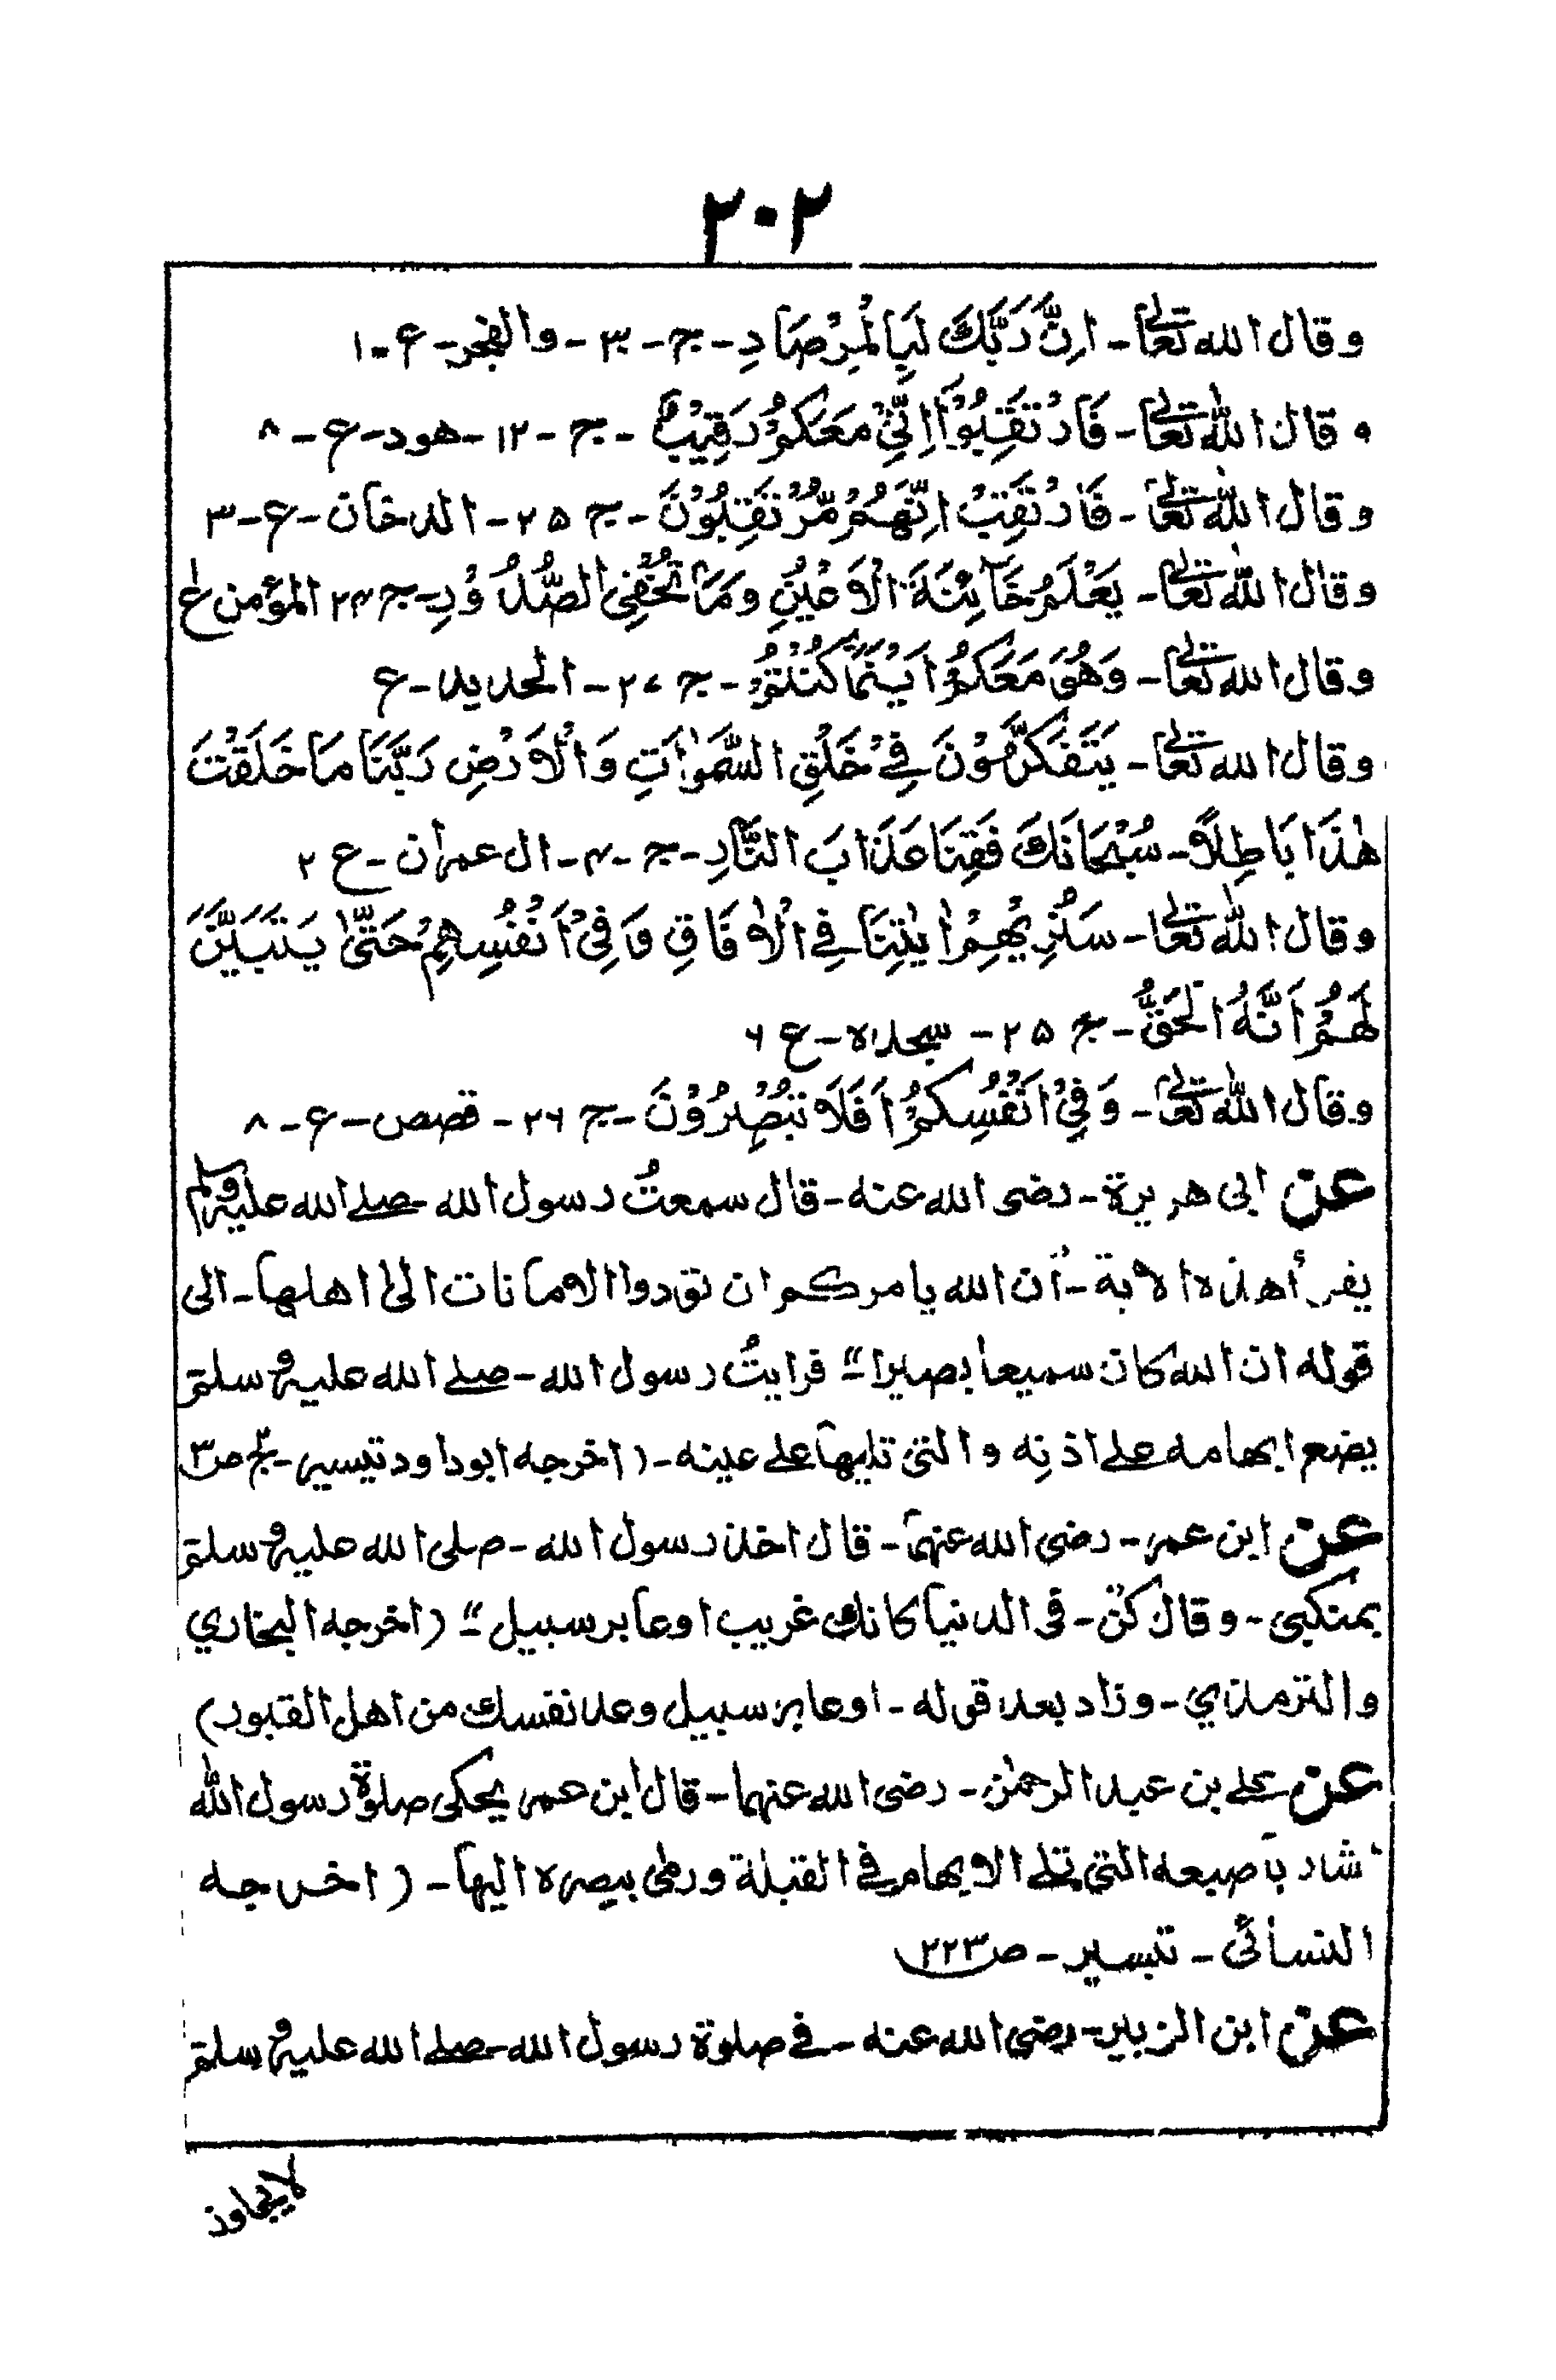 ٢٠٢
وقال الله تعالى - اِنَّ رَبَّكَ لَبِالْمِرْصَادِ - ج - ٣٠ - والفجر - ع - ١
وقال الله تعالى - فَارْتَقِبُوْا اِنِّيْ مَعَكُمْ رَقِيْبٌ - ج - ١٢ - هود - ع - ٨
وقال الله تعالى - فَارْتَقِبْ اِنَّهُمْ مُّرْتَقِبُوْنَ - ج ٢٥ - الدخان - ع - ٣
وقال الله تعالى - يَعْلَمُ خَآئِنَةَ الْاَعْيُنِ وَمَا تُخْفِى الصُّدُوْرِ - ج ٢٤ المؤمن ع
وقال الله تعالى - وَهُوَ مَعَكُمْ اَيْنَمَا كُنْتُمْ - ج ٢٧ - الحديد - ع
وقال الله تعالى - يَتَفَكَّرُوْنَ فِيْ خَلْقِ السَّمٰوَاتِ وَالْاَرْضِ رَبَّنَا مَا خَلَقْتَ
هٰذَا بَاطِلًا - سُبْحَانَكَ فَقِنَا عَذَابَ النَّارِ - ج - ٤ - ال عمران - ع ٢
وقال الله تعالى - سَنُرِيْهِمْ اٰيٰتِنَا فِي الْاٰفَاقِ وَفِيْ اَنْفُسِهِمْ حَتّٰى يَتَبَيَّنَ
لَهُمْ اَنَّهُ الْحَقُّ - ج ٢٥ - سجده - ع ٦
وقال الله تعالى - وَفِيْ اَنْفُسِكُمْ اَفَلَا تُبْصِرُوْنَ - ج ٢٦ - قصص - ع - ٨
عن ابى هريرة - رضى الله عنه - قال سمعتُ رسول الله - صلے الله عليه وسلم
يقرأ هذه الاية - أن الله يامركم ان تؤدوا الامانات الى اهلها - الى
قوله ان الله كان سميعا بصيرا" فرايتُ رسول الله - صلے الله عليه وسلم
يضع ابهامه علے اذنه والتى تليها علے عينه - (اخرجه ابوداود تيسير - ج ص٣
عن ابن عمر - رضى الله عنهما - قال اخذ رسول الله - صلى الله عليه وسلم
بمنكبى - وقال كن - فى الدنيا كانك غريب او عابر سبيل" (اخرجه البخاري
والترمذي - وزاد بعد قوله - او عابر سبيل وعد نفسك من اهل القبور)
عن علے بن عبد الرحمٰن - رضى الله عنهما - قال ابن عمر يحكى صلوة رسول الله
اشار باصبعه التى تلے الابهام فى القبلة ورمى ببصره اليها - (اخرجه
النسائى - تيسير - ص ٢٢٣
عن ابن الزبير - رضى الله عنه - فى صلوة رسول الله - صلے الله عليه وسلم
لايجاوز